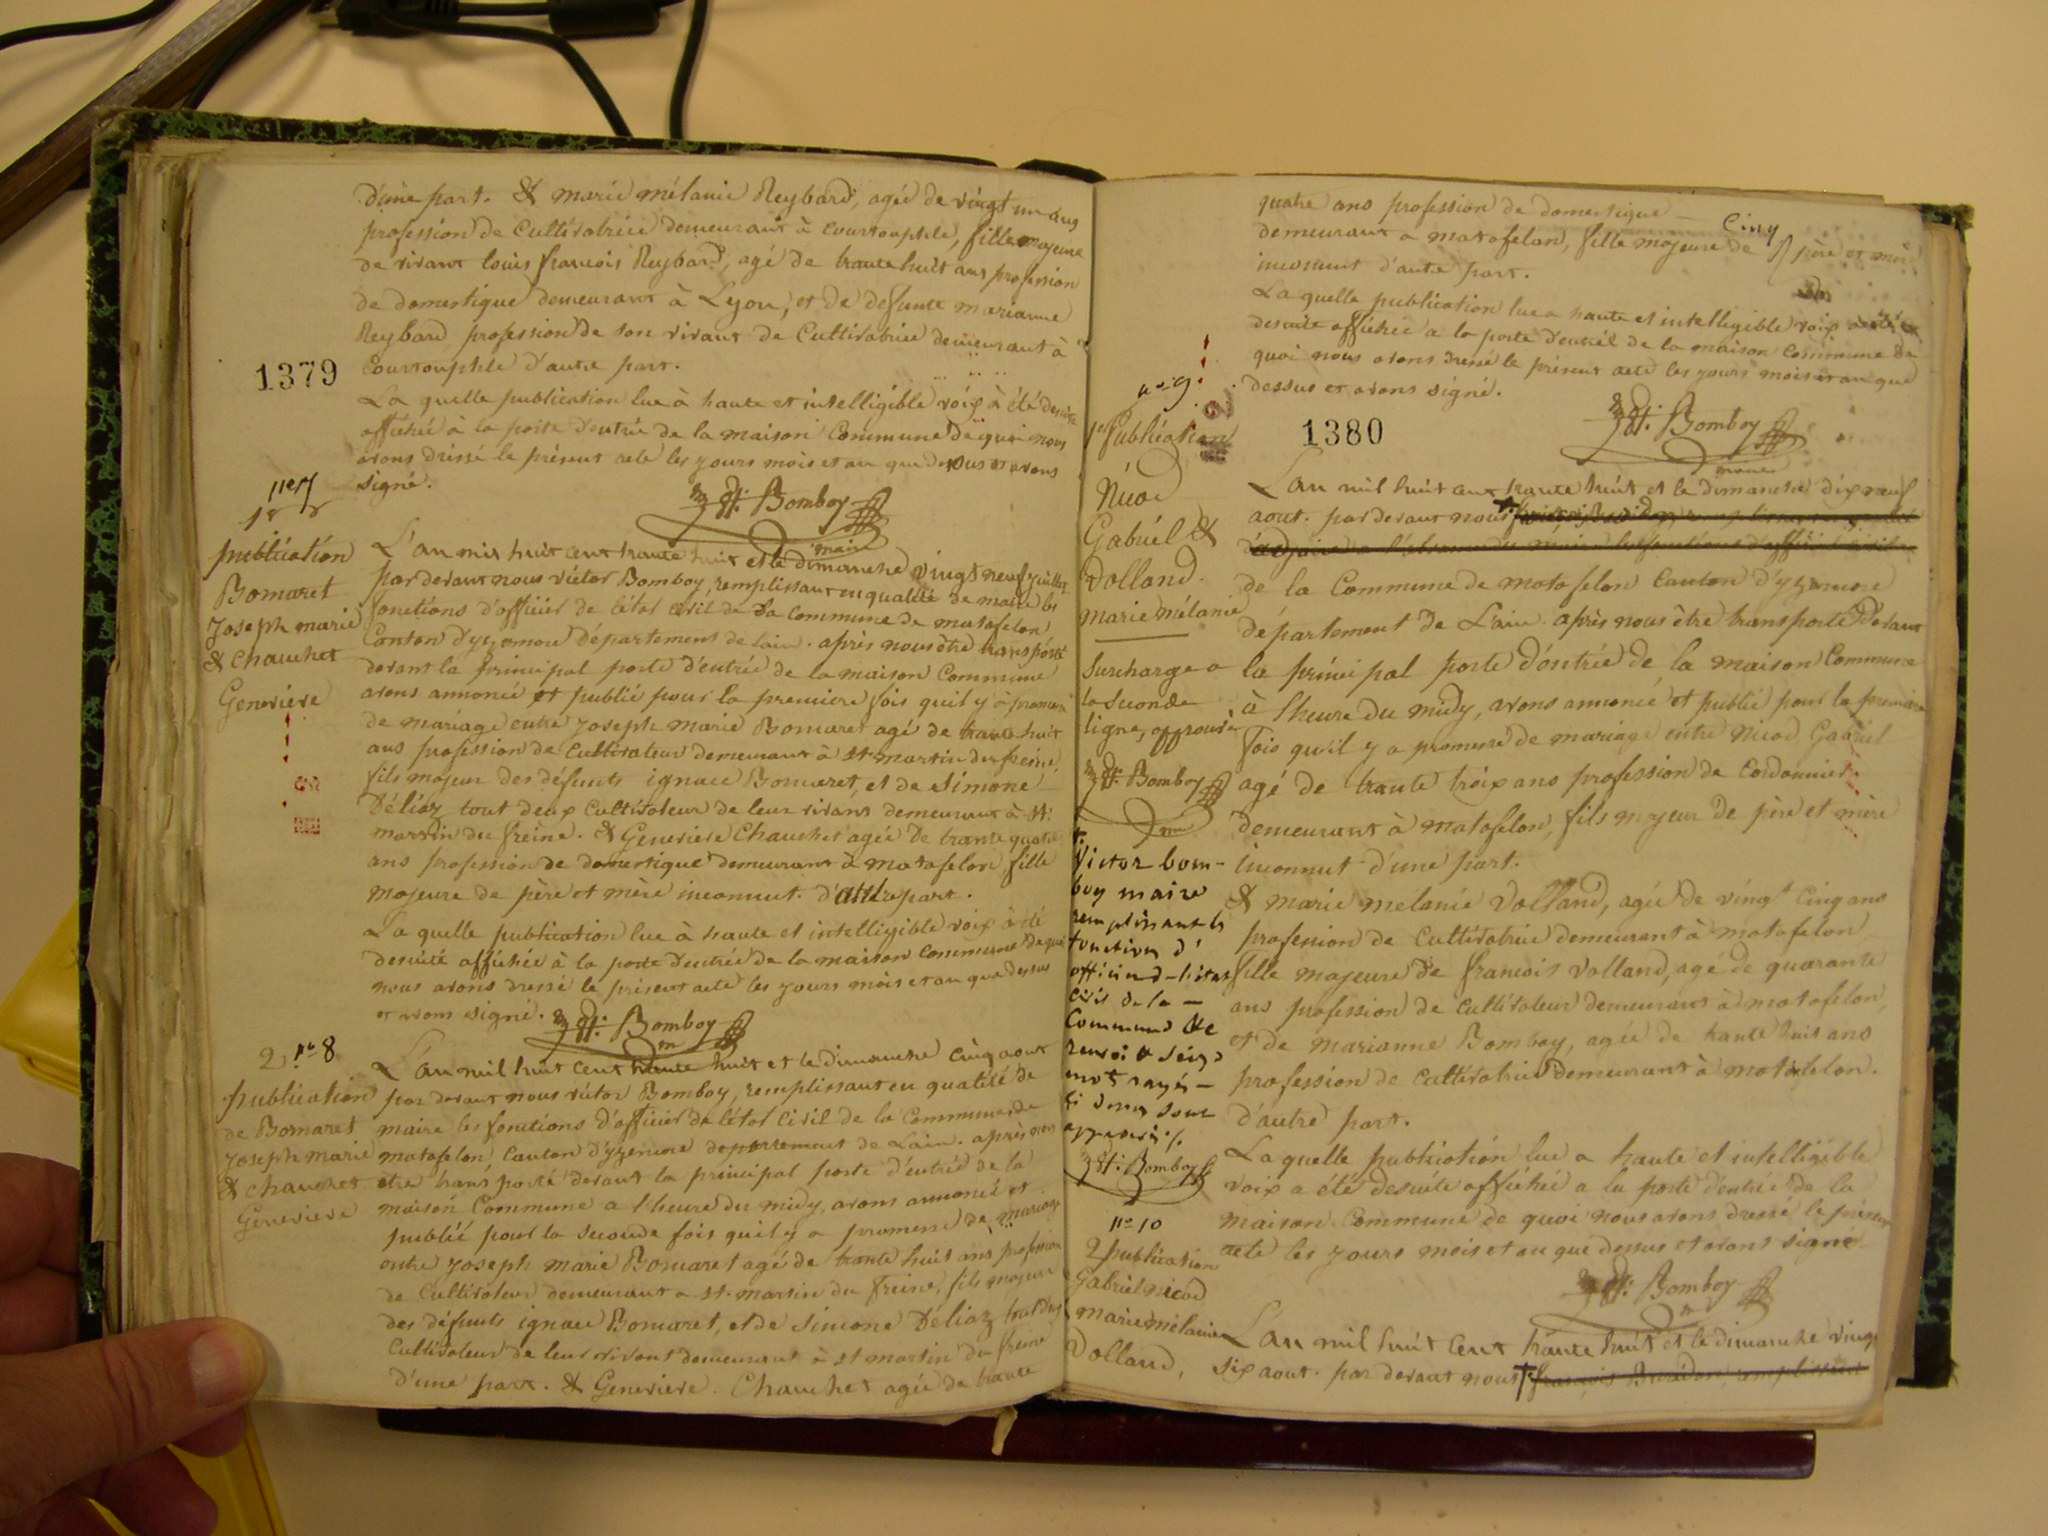 d'une part. & marie mélanie Reybard, agée de vingt un ans
profession de Cultivatrice demeurant à Courtouphle, fille majeure
de vivant louis francois Reybard, agé de trante huit ans profession
de domestique demeurant à Lyon, et de defunte marianne
Reybard profession de son vivant de Cultivatrice demeurant à
Courtouphle d'autre part.
1379
La quelle publication lue à haute et intelligible voix à été desuite
affichée à la porte d'entrée de la maison Commune de quoi nous
avons dréssé le présent acte les yours mois et an que dessus et avons
signé.
Bomboy
maire
n° 7
1r
publication
Bomaret
Joseph marie
& chauchet
Genevieve
L'an mil huit cent trante huit et le dimanche vingt neuf juillet
par devant nous victor Bomboy, remplissant en qualité de maire les
fonctions d'officier de l'état civil de la Commune de matafelon
Canton d'yzernore département de lain. après nous être transporté
devant la principal porte d'entrée de la maison Commune
avons annoncé et publié pour la premiere fois quil y à promesse
de mariage entre Joseph marie Bomaret agé de trante huit
ans profession de Cultivateur demeurant à st martin du freine,
fils majeur des défunts ignace Bomaret, et de Simone
Déliaz tout deux Cultivateur de leur vivant demeurant à st:
martin du freine. & Genevieve Chauchet agée de trante quatre
ans profession de domestique demeurant à matafelon, fille
majeure de père et mère inconnut. d'autre part.
La quelle publication lue à haute et intelligible voix à été
desuité affichée à la porte d'entrée de la maison Commune de quoi
nous avons dressé le présent acte les yours mois et an que dessus
et avons signé.
Bomboy
m
2 n° 8
publication
de Bomaret
Joseph marie
& chauchet
Genevieve
L'an mil huit cent trante huit et le dimanche cinq aout
par devant nous victor Bomboy, remplissant en qualité de
maire les fonctions d'officier de l'état Civil de la Commune de
matafelon, Canton d'yzernore departement de Lain. après nous
etre transporté devant la principal porte d'entrée de la
maison Commune a l'heure du midy, avons annoncé et
publié pour la seconde fois quil y a promesse de mariage
entre Joseph marie Bomaret agé de trante huit ans profession
de Cultivateur demeurant a st. martin du freine, fils majeur
des défunts ignace Bomaret, et de Simone Déliaz tout deux
Cultivateur de leur vivant demeurant à st martin du freine
d'une part. & Genevieve. Chauchet agée de trante
quatre ans profession de domestique Cinq
demeurant a matafelon, fille majeure de père et mère
inconnut d'autre part.
La quelle publication lue a haute et intelligible voix a été
desuite affichée a la porte d'entrée de la maison Commune de
quoi nous avons dressé le présent acte les yours mois et an que
dessus et avons signé.
Bomboy
maire
1380
n° 9
1re Publication
Nicod
Gabriel &
Volland
marie mélanie
Surcharge a
la seconde
ligne, approuvé
Bomboy
m
Victor bom-
boy maire
remplissant les
fonctions d'
officier d-l'état
civil de la -
Commune de
renvoi &
mot rayés -
ci dessus sont
approuvés
Bomboy
L'an mil huit cent trante huit et le dimanche dix neuf
aout. par devant nous
de la Commune de matafelon Canton d'yzernore
département de L'ain. après nous être transporté devant
la principal porte d'entrée de la maison Commune
à l'heure du midy, avons annoncé et publié pour la premiere
fois qu'il y a promesse de mariage entre Nicod Gabriel
agé de trante troix ans profession de Cordonnier.
demeurant à matafelon, fils majeur de père et mère
inconnut d'une part.
& marie mélanie Volland, agée de vingt Cinq ans
profession de Cultivatrice demeurant à matafelon
fille majeure de francois Volland, agé de quarante
ans profession de Cultivateur demeurant à matafelon,
et de marianne Bomboy, agée de trante huit ans
profession de Cultivatrice demeurant à matafelon.
d'autre part.
La quelle publication lue a haute et intelligible
voix a été desuite affiché a la porte d'entrée de la
maison Commune de quoi nous avons dressé le présent
acte les yours mois et an que dessus et avons signé
Bomboy
m
n° 10
2 publication
Gabriel nicod
marie mélanie
Volland,
L'an mil huit cent trante huit et le dimanche vingt
six aout. par devant nous francois remplissant